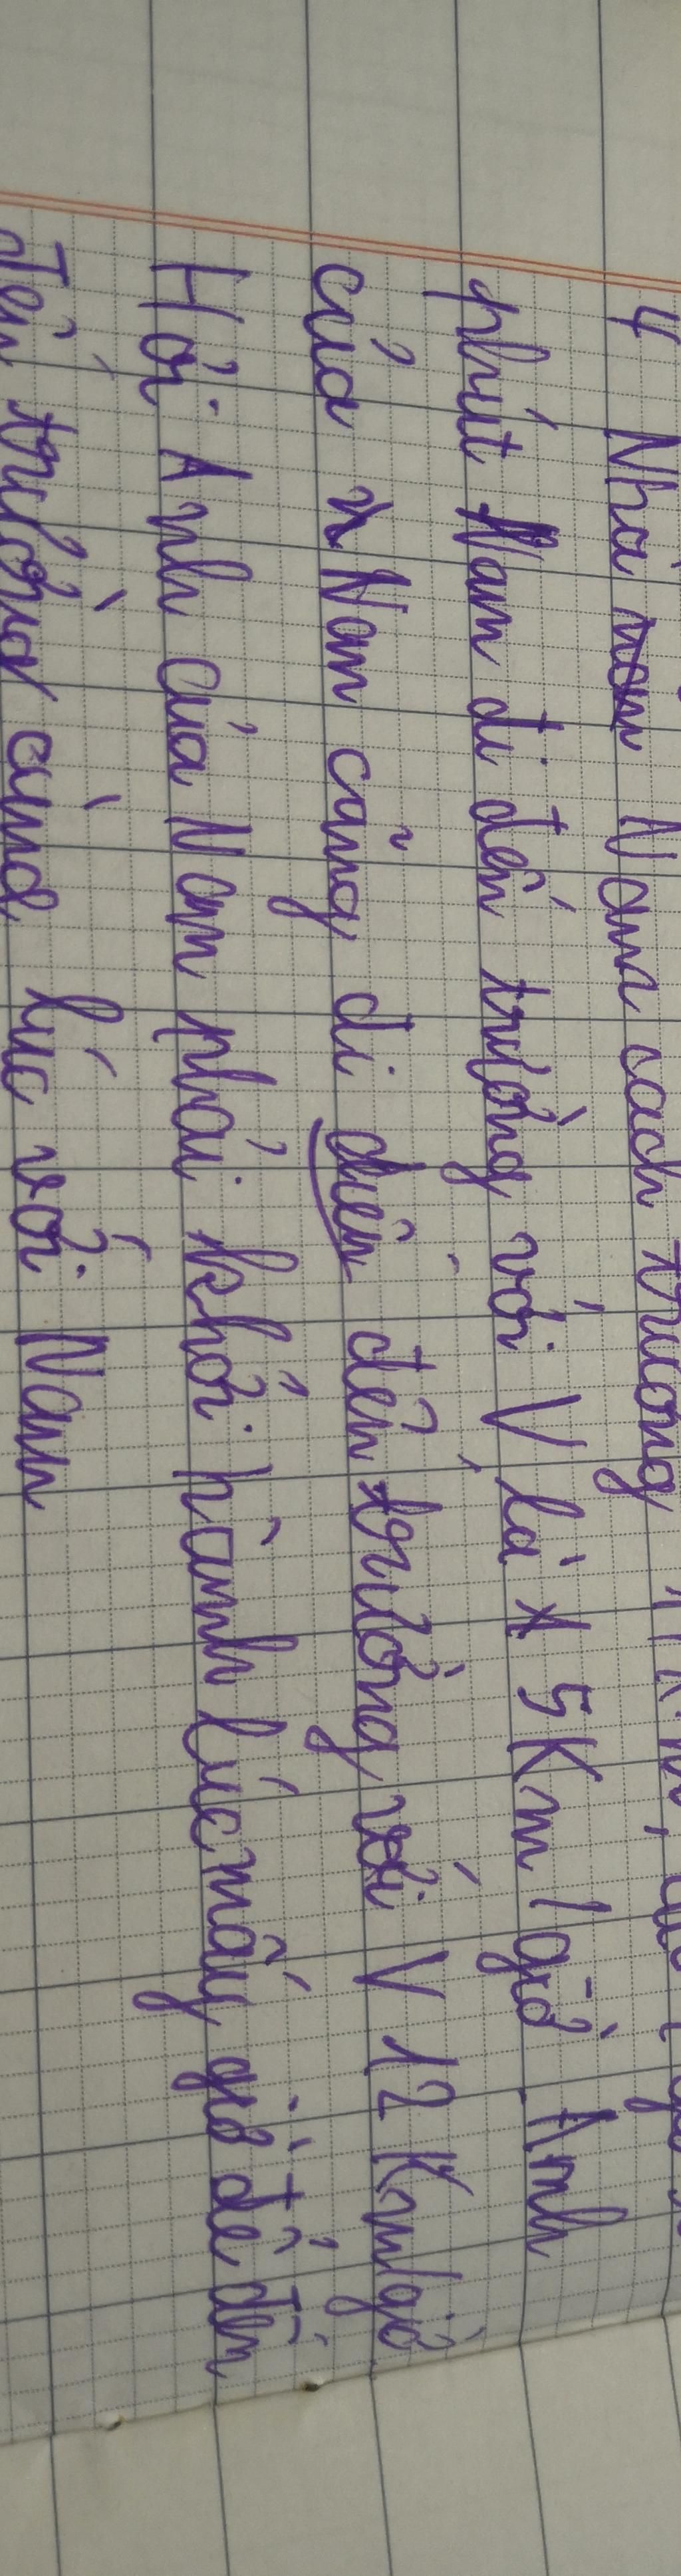 4 Nhà Nam cách trường
phút Nam đi đến trường với V là 5 Km/giờ Anh
của Nam cũng đi đến trường với V 12 Km/giờ
Hỏi Anh của Nam phải khởi hành lúc mấy giờ để đến
trường cùng lúc với Nam